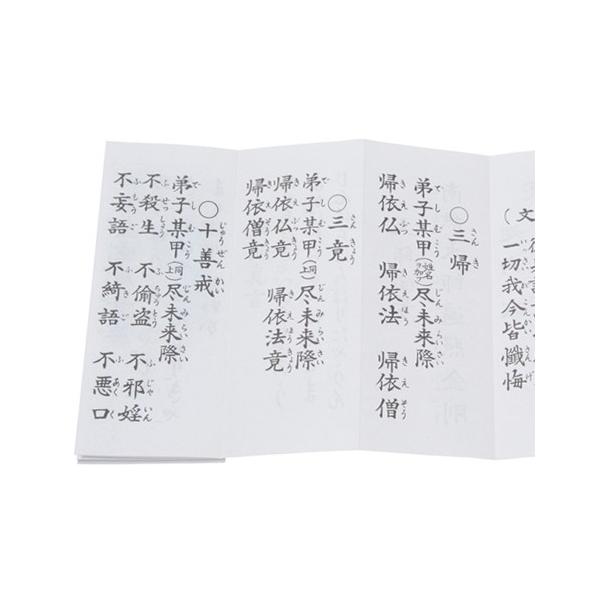 (文
一切我今皆懺悔
○三帰
弟子某甲(姓名ヲ加フ)尽未来際
帰依仏 帰依法 帰依僧
○三竟
弟子某甲(上同)尽未来際
帰依仏竟 帰依法竟
帰依僧竟
○十善戒
弟子某甲(上同)尽未来際
不殺生 不偸盗 不邪婬
不妄語 不綺語 不悪口